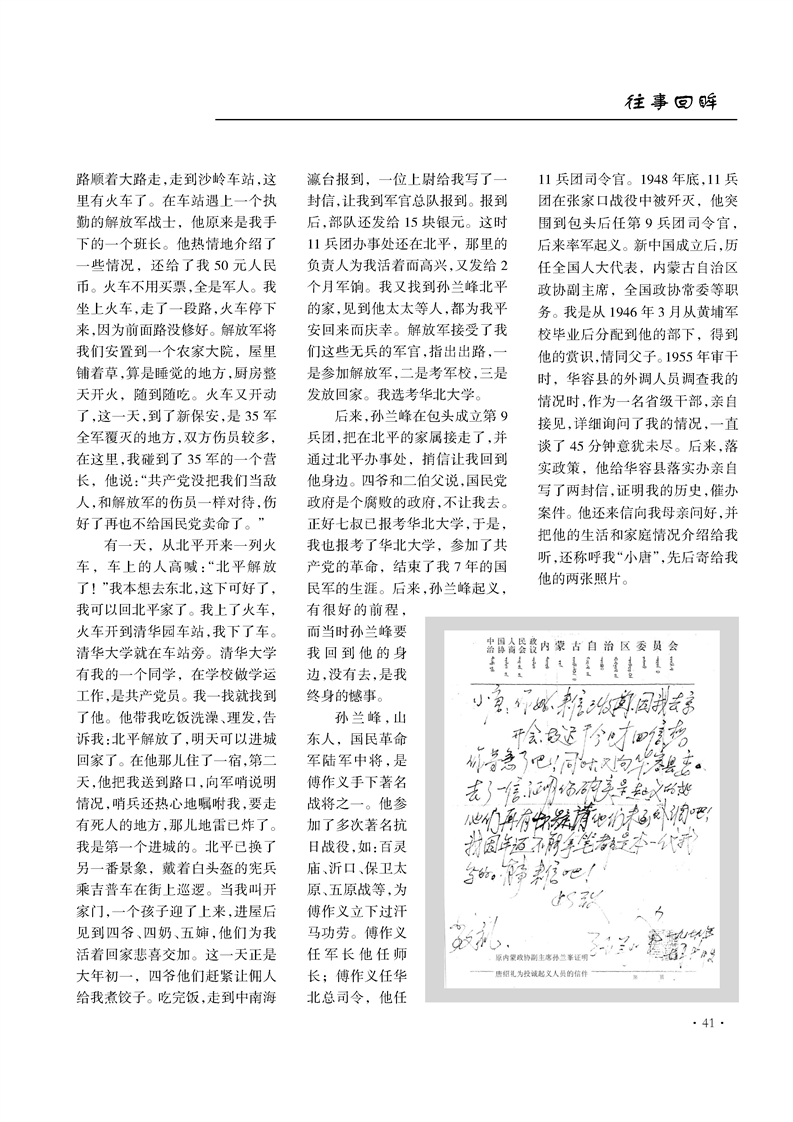 往事回眸
路顺着大路走,走到沙岭车站,这
里有火车了。在车站遇上一个执
勤的解放军战士，他原来是我手
下的一个班长。他热情地介绍了
一些情况，还给了我 50 元人民
币。火车不用买票,全是军人。我
坐上火车,走了一段路,火车停下
来,因为前面路没修好。解放军将
我们安置到一个农家大院，屋里
铺着草,算是睡觉的地方,厨房整
天开火，随到随吃。火车又开动
了,这一天,到了新保安,是 35 军
全军覆灭的地方,双方伤员较多,
在这里,我碰到了 35 军的一个营
长，他说:“共产党没把我们当敌
人,和解放军的伤员一样对待,伤
好了再也不给国民党卖命了。”
有一天，从北平开来一列火
车，车上的人高喊:“北平解放
了！”我本想去东北,这下可好了，
我可以回北平家了。我上了火车,
火车开到清华园车站,我下了车。
清华大学就在车站旁。清华大学
有我的一个同学，在学校做学运
工作,是共产党员。我一找就找到
了他。他带我吃饭洗澡、理发,告
诉我:北平解放了,明天可以进城
回家了。在他那儿住了一宿,第二
天,他把我送到路口,向军哨说明
情况,哨兵还热心地嘱咐我,要走
有死人的地方,那儿地雷已炸了。
我是第一个进城的。北平已换了
另一番景象，戴着白头盔的宪兵
乘吉普车在街上巡逻。当我叫开
家门,一个孩子迎了上来,进屋后
见到四爷、四奶、五婶,他们为我
活着回家悲喜交加。这一天正是
大年初一，四爷他们赶紧让佣人
给我煮饺子。吃完饭,走到中南海
瀛台报到，一位上尉给我写了一
封信,让我到军官总队报到。报到
后,部队还发给 15 块银元。这时
11 兵团办事处还在北平，那里的
负责人为我活着而高兴,又发给 2
个月军饷。我又找到孙兰峰北平
的家,见到他太太等人,都为我平
安回来而庆幸。解放军接受了我
们这些无兵的军官,指出出路,一
是参加解放军,二是考军校,三是
发放回家。我选考华北大学。
后来,孙兰峰在包头成立第 9
兵团,把在北平的家属接走了,并
通过北平办事处，捎信让我回到
他身边。四爷和二伯父说,国民党
政府是个腐败的政府,不让我去。
正好七叔已报考华北大学,于是,
我也报考了华北大学，参加了共
产党的革命，结束了我 7 年的国
民军的生涯。后来,孙兰峰起义,
有很好的前程，
而当时孙兰峰要
我回到他的身
边,没有去,是我
终身的憾事。
孙兰峰,山
东人，国民革命
军陆军中将，是
傅作义手下著名
战将之一。他参
加了多次著名抗
日战役,如:百灵
庙、沂口、保卫太
原、五原战等,为
傅作义立下过汗
马功劳。傅作义
任军长他任师
长；傅作义任华
北总司令，他任
11 兵团司令官。1948 年底,11 兵
团在张家口战役中被歼灭，他突
围到包头后任第 9 兵团司令官，
后来率军起义。新中国成立后,历
任全国人大代表，内蒙古自治区
政协副主席，全国政协常委等职
务。我是从 1946 年 3 月从黄埔军
校毕业后分配到他的部下，得到
他的赏识,情同父子。1955 年审干
时，华容县的外调人员调查我的
情况时,作为一名省级干部,亲自
接见,详细询问了我的情况,一直
谈了 45 分钟意犹未尽。后来,落
实政策，他给华容县落实办亲自
写了两封信,证明我的历史,催办
案件。他还来信向我母亲问好,并
把他的生活和家庭情况介绍给我
听,还称呼我“小唐”,先后寄给我
他的两张照片。
中国人民政治协商会议内蒙古自治区委员会
小唐：
敬礼
原内蒙政协副主席孙兰峯证明
唐绍礼为投诚起义人员的信件
· 41 ·